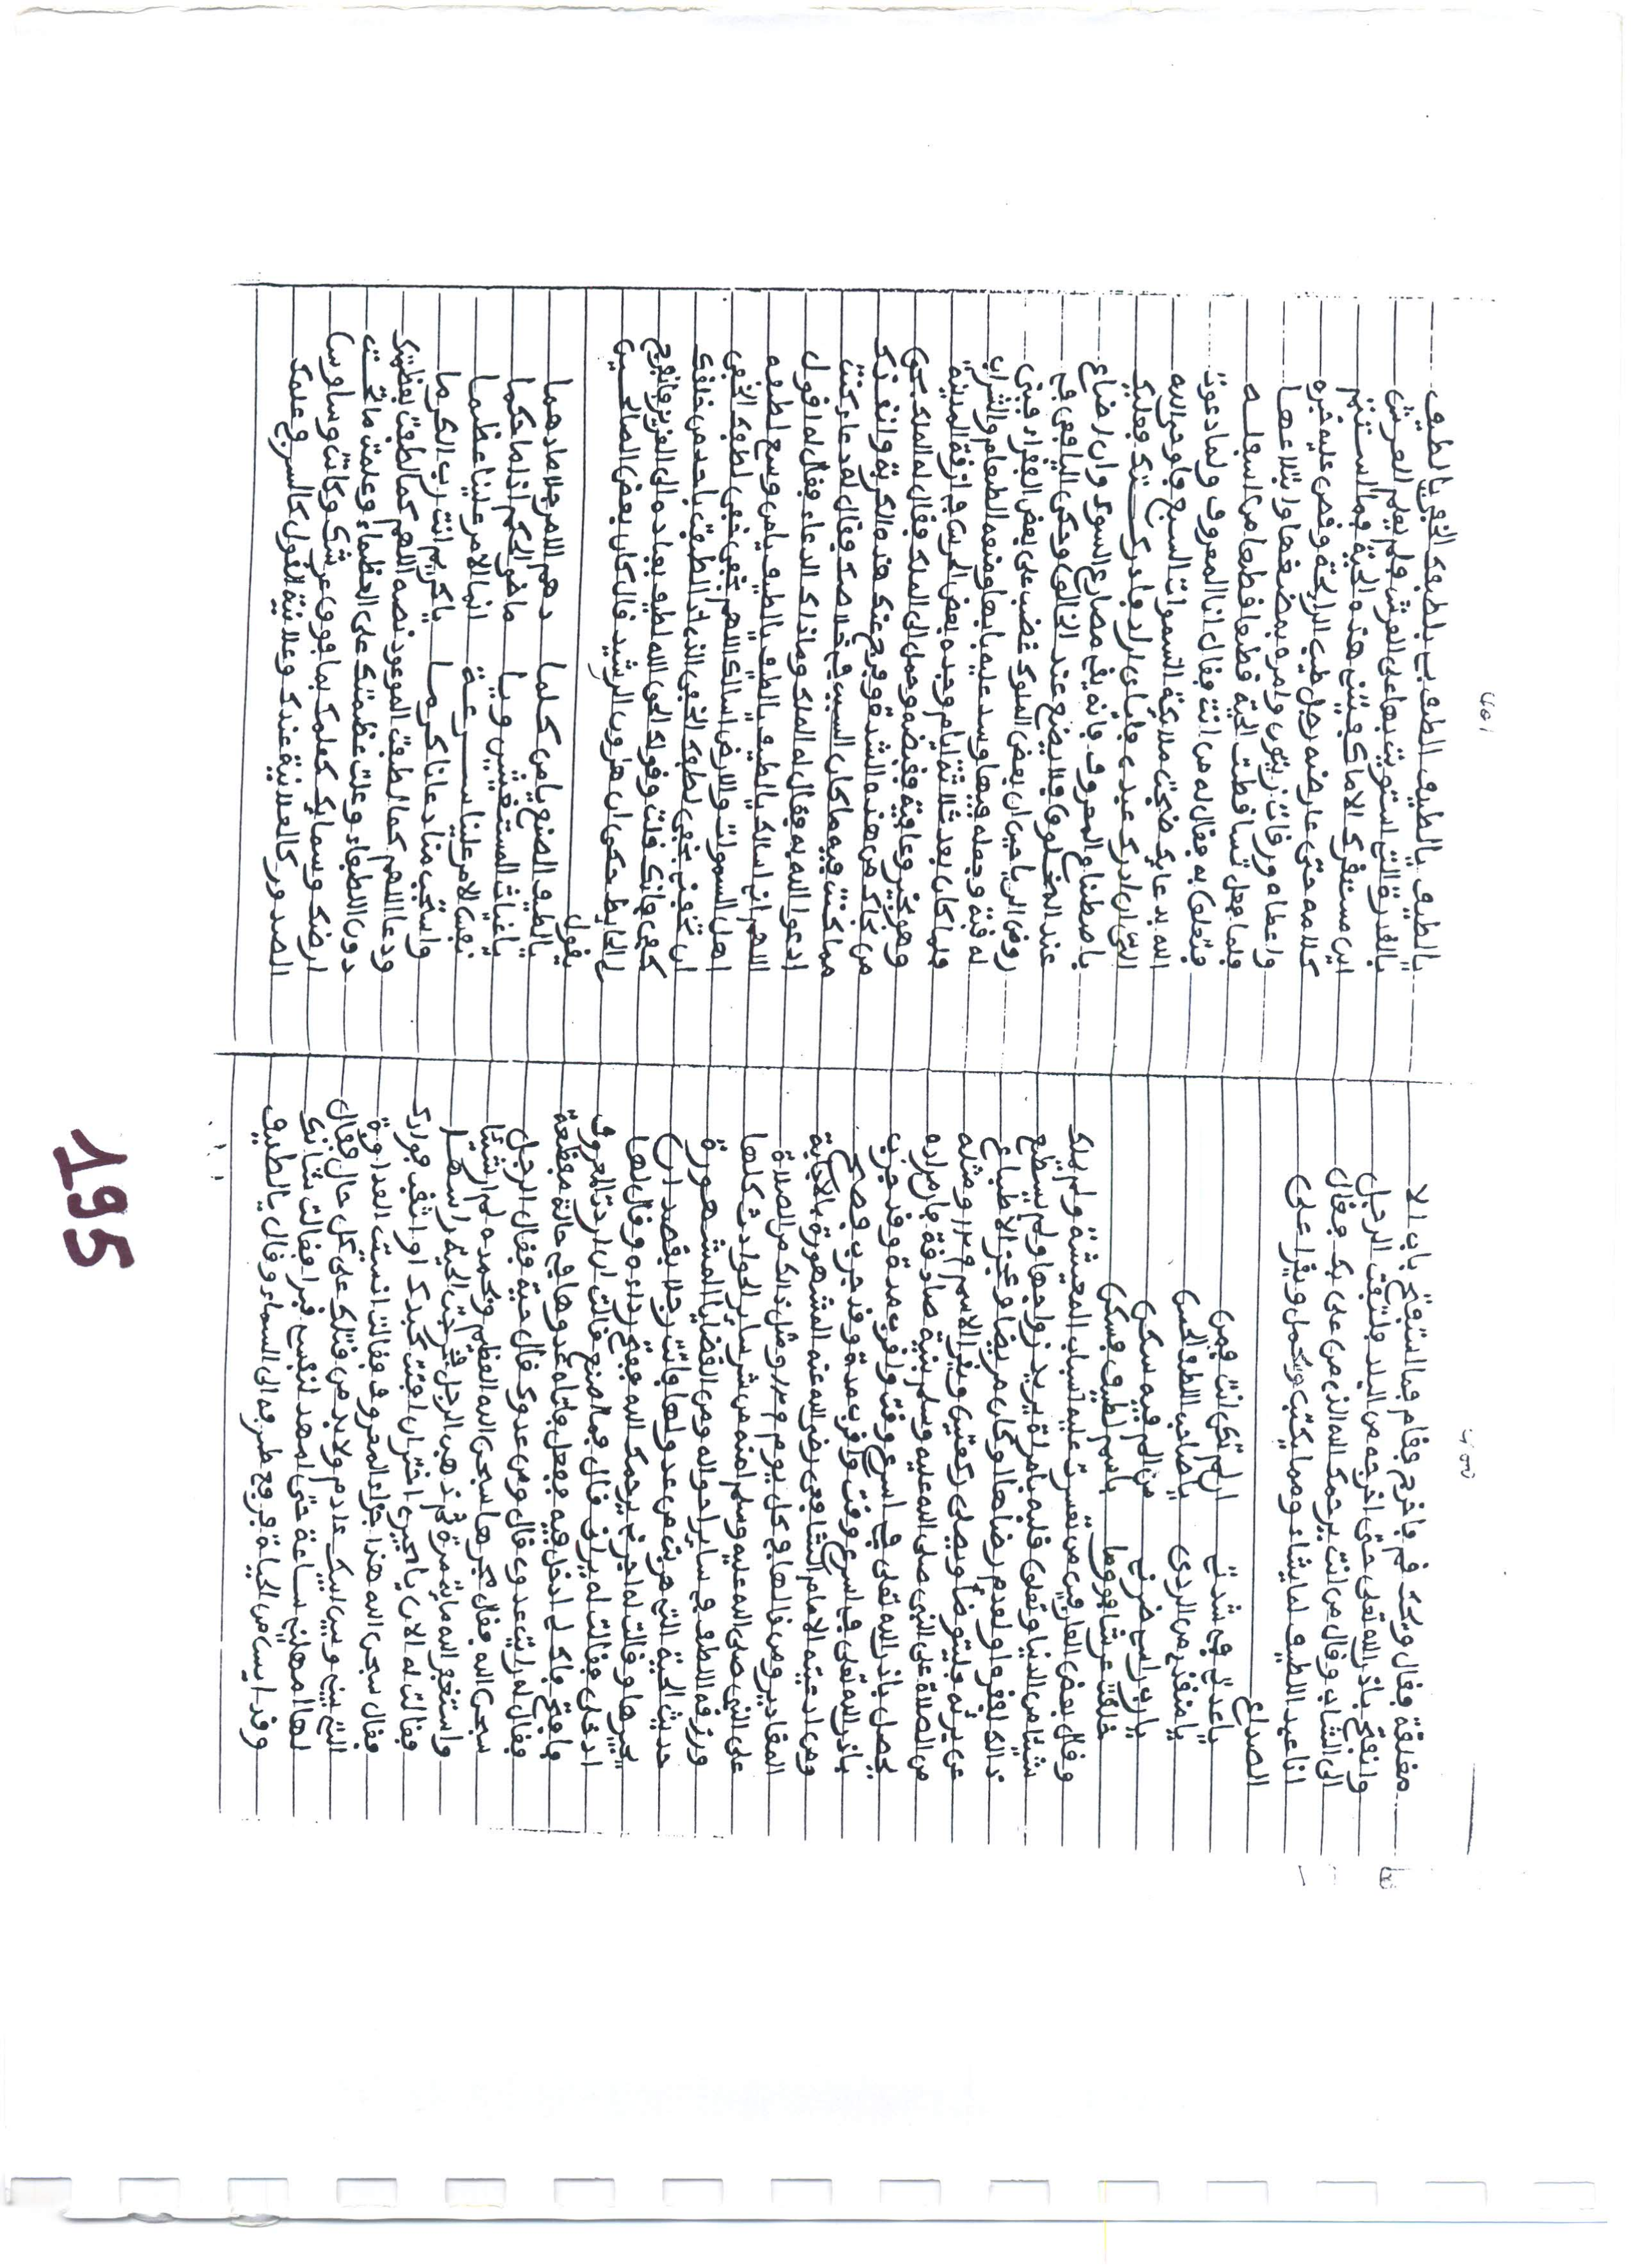 مغلقة فقال ويحك قم فاخرج فقام فما استفتح باب الا
وانفتح باذن الله تعلى حتى اخرجه من البلد فلتفت الرجل
الى الشاب وقال من انت يرحمك الله الذي من على بك فقال
انا عبد اللطيف لما يشاء ومما يكتب ويحمل ويقرا على
الصداع
يا عدتي في شدتي ارحم تكن انت فمن
يا منقذي من الردى يا صاحب اللطف الحسن
يا رب راسي ضرني من الم فيه سكن
خلقته عرشا باسم لطيف فسكن
وقال بعض العارفين من تعسرت عليه اسباب المعيشة ولم يملك
شيئا من الدنيا وتعلق قلبه بامراة يريد زواجها ولم يستطع
ذالك لفقره او لعدم رضاها او كان مريضا وعجز الاطباء
عن برئه فليتوضأ ويصلى ركعتين ويقرا الاسم ومثله
من الصلاة على النبي صلى الله عليه وسلم بنية صادقة فان مراده
يحصل باذن الله تعلى في اسرع وقت واقرب مدة وقد جرب
باذن الله تعلى في اسرع وقت واقرب مدة وقد جرب وصح
ومن ادعية الامام الشافعي رضي الله عنه المشهورة بالاجابة
المقادير ومن قالها في كل يوم ومثل ذالك من الصلاة
على النبي صلى الله عليه وسلم امنه من شر سائر الحوادث كلها
ورزقه اللطف في سائر احواله ومن القضايا المشهورة
حديث الحية التي هربت من عدو لها واتت رجلا يقصد ان
يجيرها وقالت له اجرني يرحمك الله ففتح رداءه وقال لها
ادخلي فقالت له يراني قال فما اصنع قالت ان اردت المعروف
فافتح فاك لي ادخل فيه ففعل فاتاه عدوها في حالة مفظعة
فقال له رايت عدوي قال ومن عدوك قال حية فقال الرجل
سبحن الله فقال سبحن الله العظيم وبحمده لم ار شيئا
واستغفر الله مائة مرة ثم ذهب الرجل فاخرجت الحية راسها
فقالت له الان يا مجيري اختر ان افتت كبدك او اثقب فؤادك
فقال سبحن الله هذا جزاء المعروف فقالت انسيت العداوة
التي بيني وبين ابيك ءادم ولا بد من قتلك على كل حال فقال
لها امهليني ساعة حتى امهد لنفسي قبرا فقالت شانك
وقد ايس من الحياة فرفع طرفه الى السماء وقال يا لطيف
يا لطيف يا لطيف الطف بي بلطفك الخفي يا لطيف
بالقدرة التي استويت بها على العرش فلم يعلم العرش
اين مستقرك الا ما كفيتني هذه الحية فما استتم
كلامه حتى عارضه رجل طيب الرائحة وقص عليه خبره
واعطاه ورقات زيتون وامره بمضغها وابتلاعها
فلما فعل تساقطت الحية قطعا قطعا من اسفله
فتعلق به فقال له من انت فقال انا المعروف ولما دعوت
الله بدعائك ضجت ملائكة السموات السبع فاوحى الله
الي ان ادرك عبدي فاياي اراد فادركتك فعليك
باصطناع المعروف فانه يقي مصارع السوء وان ضاع
عند المخلوق فلا يضيع عند الخالق وحكى اليافعي في
روض الرياحين ان بعض الملوك غضب على بعض الفقراء فبنى
له قبة وجعله فيها وسد عليه بابها ومنعه الطعام والشراب
فلما كان بعد ثلاثة ايام وجده بعض الحرس في ازقة المدينة
وهو بخير وعافية فقبضه وحمل الى الملك فقال له الملك بحق
من نجاك من هذه الشدة وفرج عنك هذه الكربة وانقذك
مما كنت فيه ما كان السبب في خلاصك فقال له دعاء كنت
ادعوا الله به فقال له الملك وما ذاك الدعاء فقال له اقول
اللهم اني اسالك يا لطيف يا لطيف يا لطيف يا من وسع لطفه
اهل السموات والارض اسالك اللهم بخفي خفي لطفك الخفي
ان تخفني بخفي لطفك الخفي الذي اذا لطفت باحد من خلقك
كفي فانك قلت وقولك الحق الله لطيف بعباده الى العزيز فانفرج
لي الحايط حكى ان هرون الرشيد قال كان بعض الصالحين
يقول
يا لطيف الصنع يا من كلما دهم الامر جلا ما دهما
يا غياث المستغيثين ويا ماضي الحكم اذا ما حكما
نفس الامر علينا سرعة انما الامر علينا عظما
واستجب منا دعانا كرما يا كريم انت رب الكرما
ودعا اللهم كما لطفت الموعود نصه اللهم كما لطفت بعظمتك
دون اللطفاء وعلت عظمتك على العظماء وعلمت ما تحت
ارضك وسمائك كعلمك بما فوق عرشك وكانت وساوس
الصدور كالعلانية عندك وعلانية القول كالسر في علمك
195